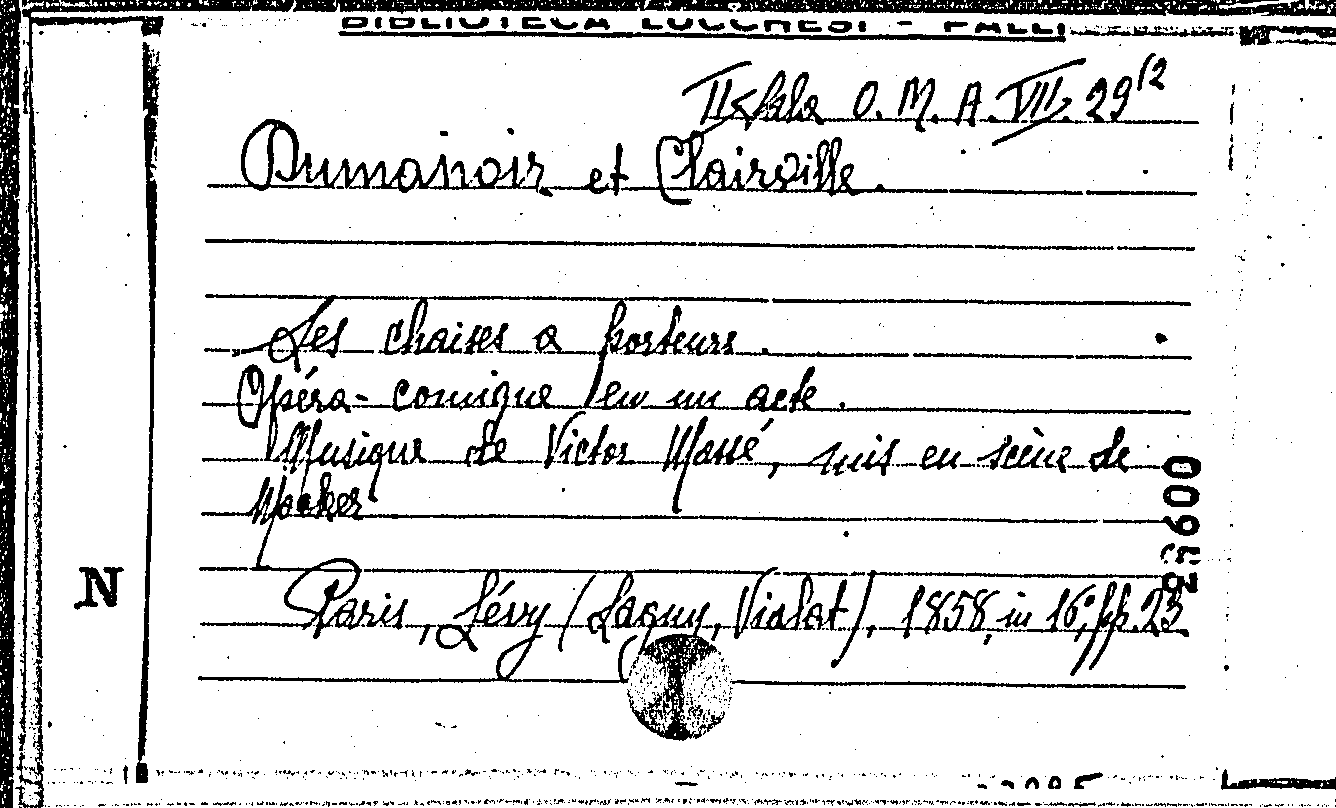 BIBLIOTECA LUCCHESI - PALLI
II Sala O. M. A. VII. 29¹²
Dumanoir et Clairville.
Les chaises a porteurs.
Opéra-comique en un acte.
Musique de Victor Massé, mis en scène de
Mocker
Paris, Lévy (Lagny, Vialat), 1858, in 16°, pp. 23
N